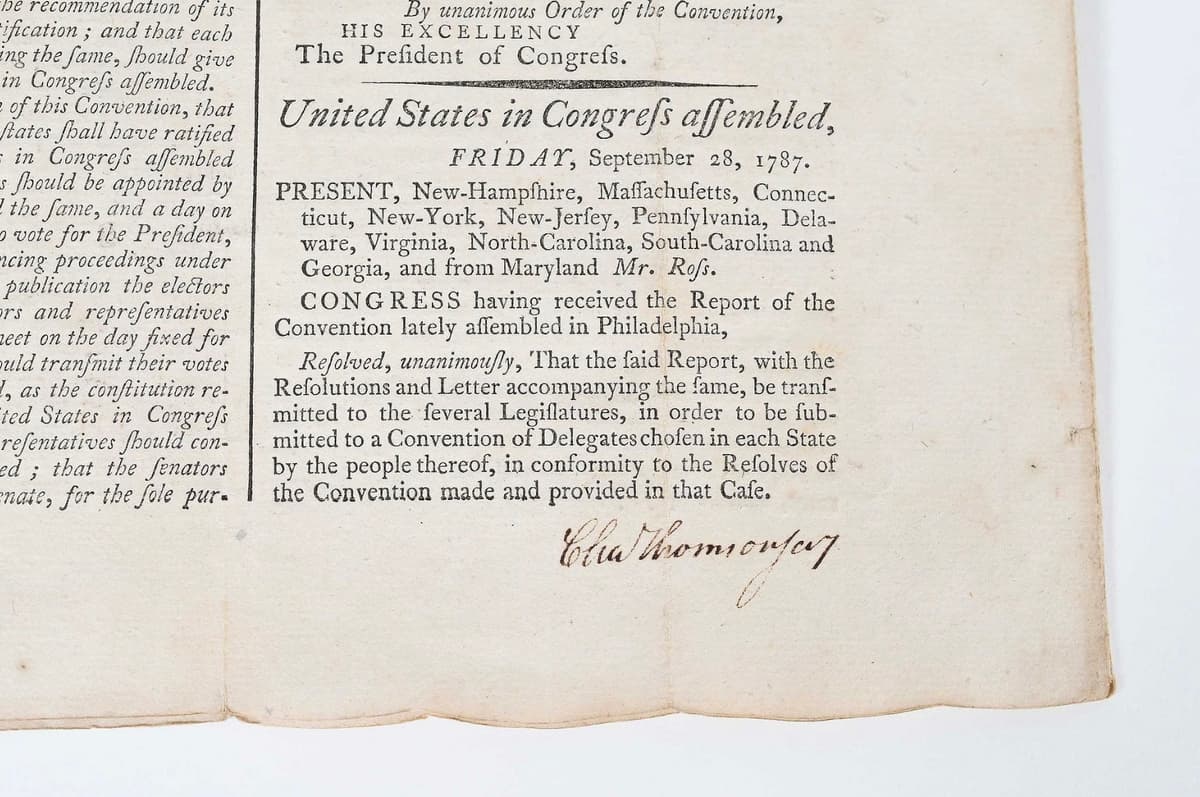 he recommendation of its
tification ; and that each
ing the ſame, ſhould give
in Congreſs aſſembled.
of this Convention, that
ſtates ſhall have ratified
in Congreſs aſſembled
s ſhould be appointed by
the ſame, and a day on
o vote for the Preſident,
ncing proceedings under
publication the electors
ors and repreſentatives
meet on the day fixed for
ould tranſmit their votes
, as the conſtitution re-
ited States in Congreſs
reſentatives ſhould con-
ed ; that the ſenators
enate, for the ſole pur-
By unanimous Order of the Convention,
HIS EXCELLENCY
The Preſident of Congreſs.
United States in Congreſs aſſembled,
FRIDAY, September 28, 1787.
PRESENT, New-Hampſhire, Maſſachuſetts, Connec-
ticut, New-York, New-Jerſey, Pennſylvania, Dela-
ware, Virginia, North-Carolina, South-Carolina and
Georgia, and from Maryland Mr. Roſs.
CONGRESS having received the Report of the
Convention lately aſſembled in Philadelphia,
Reſolved, unanimouſly, That the ſaid Report, with the
Reſolutions and Letter accompanying the ſame, be tranſ-
mitted to the ſeveral Legiſlatures, in order to be ſub-
mitted to a Convention of Delegates choſen in each State
by the people thereof, in conformity to the Reſolves of
the Convention made and provided in that Caſe.
Chas Thomson ſecy